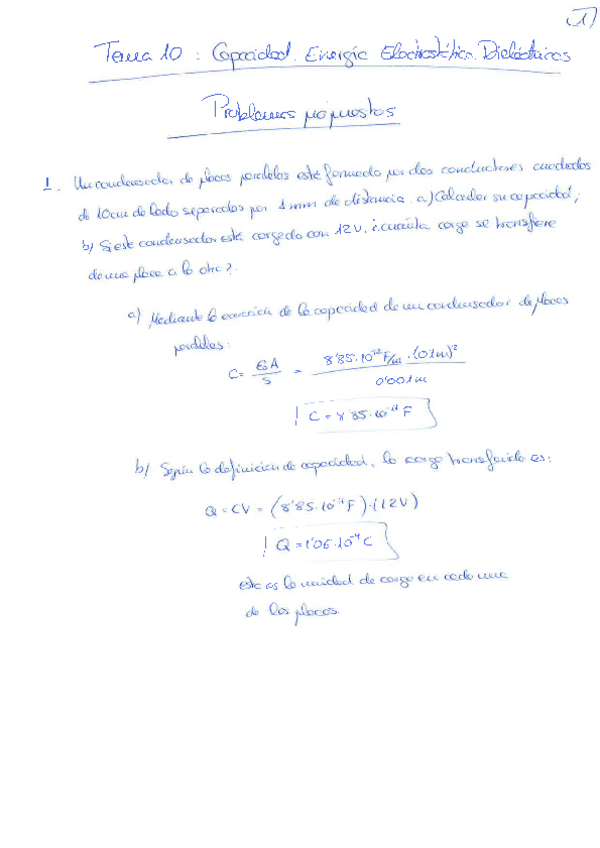 1
Tema 10 : Capacidad. Energía Electrostática. Dieléctricos
Problemas propuestos
1. Un condensador de placas paralelas está formado por dos conductores cuadrados
de 10cm de lado separados por 1mm de distancia. a) Calcular su capacidad;
b) Si este condensador está cargado con 12V, ¿cuánta carga se transfiere
de una placa a la otra?.
a) Mediante la ecuación de la capacidad de un condensador de placas
paralelas:
C = ε₀A/s = 8'85·10⁻¹² F/m · (0'1m)² / 0'001m
C = 8'85·10⁻¹¹ F
b) Según la definición de capacidad, la carga transferida es:
Q = CV = (8'85·10⁻¹¹F)·(12V)
Q = 1'06·10⁻⁹ C
esta es la unidad de carga en cada una
de las placas.